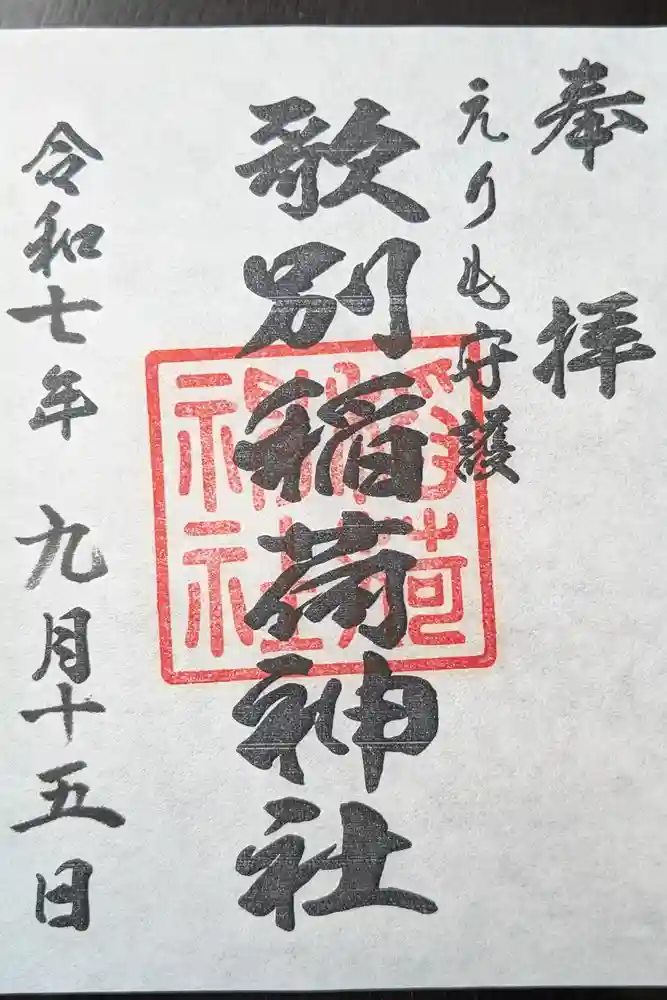 奉拝
えりも守護
歌別稲荷神社
令和七年 九月十五日